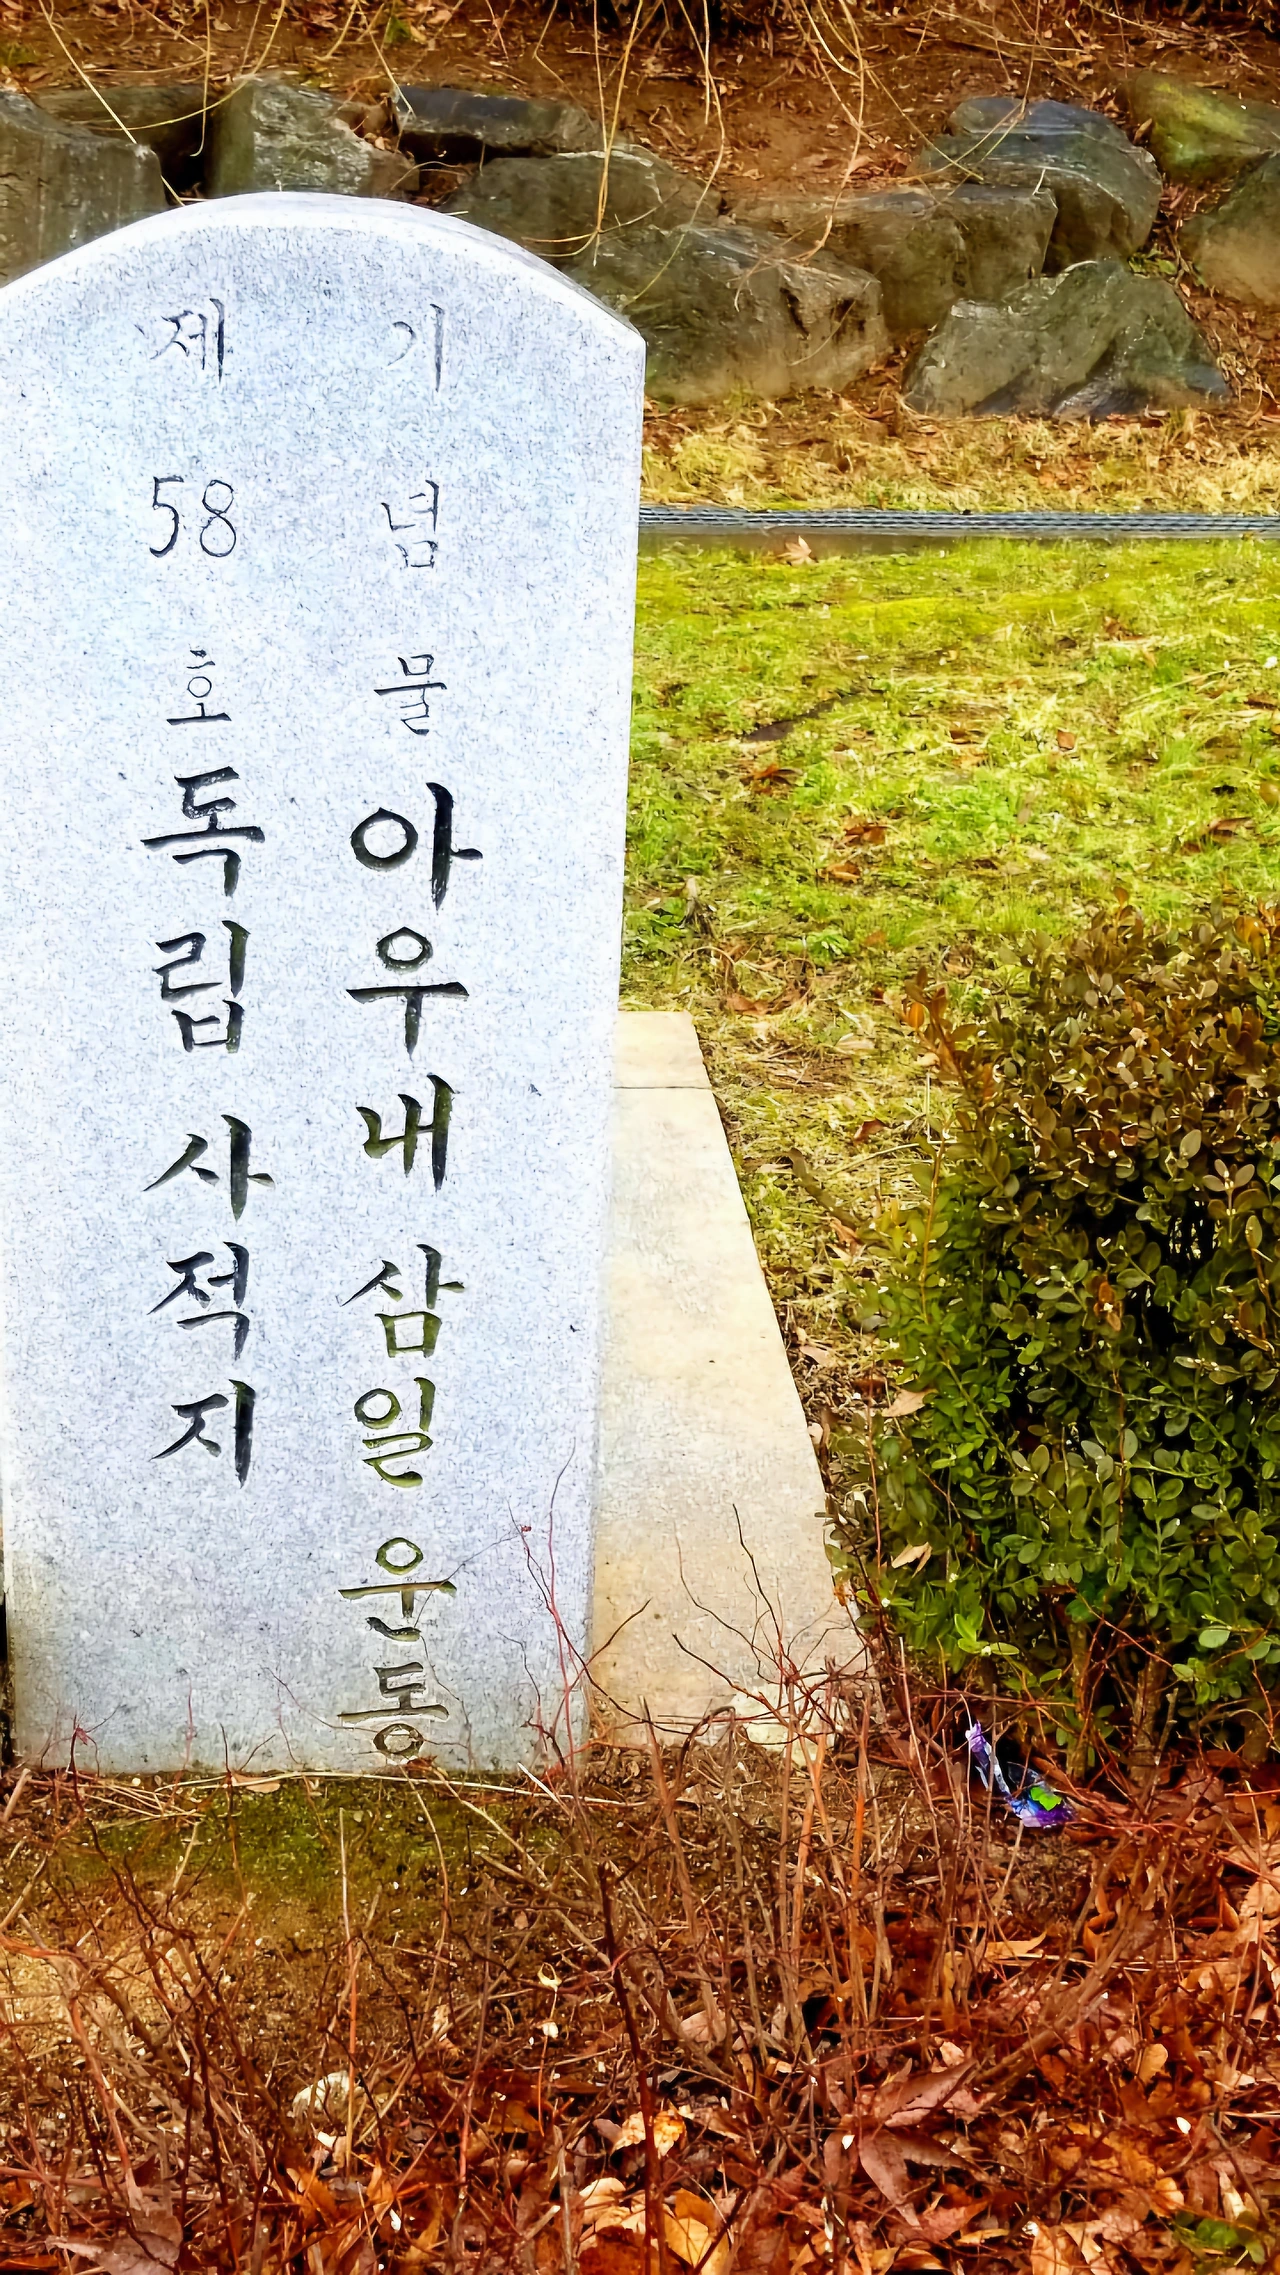 기념물 아우내삼일운동
제58호 독립사적지